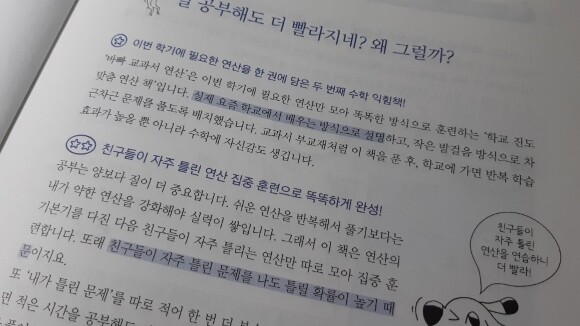 공부해도 더 빨라지네? 왜 그럴까?
이번 학기에 필요한 연산을 한 권에 담은 두 번째 수학 익힘책!
'바빠 교과서 연산'은 이번 학기에 필요한 연산만 모아 똑똑한 방식으로 훈련하는 '학교 진도
맞춤 연산 책'입니다. 실제 요즘 학교에서 배우는 방식으로 설명하고, 작은 발걸음 방식으로 차
근차근 문제를 풀도록 배치했습니다. 교과서 부교재처럼 이 책을 푼 후, 학교에 가면 반복 학습
효과가 높을 뿐 아니라 수학에 자신감도 생깁니다.
친구들이 자주 틀린 연산 집중 훈련으로 똑똑하게 완성!
공부는 양보다 질이 더 중요합니다. 쉬운 연산을 반복해서 풀기보다는
내가 약한 연산을 강화해야 실력이 쌓입니다. 그래서 이 책은 연산의
기본기를 다진 다음 친구들이 자주 틀리는 연산만 따로 모아 집중 훈
련합니다. 또래 친구들이 자주 틀린 문제를 나도 틀릴 확률이 높기 때
문이지요.
또 '내가 틀린 문제'를 따로 적어 한 번 더
면 적은 시간을 공부해도
친구들이
자주 틀린
연산을 연습하니
더 빨라!